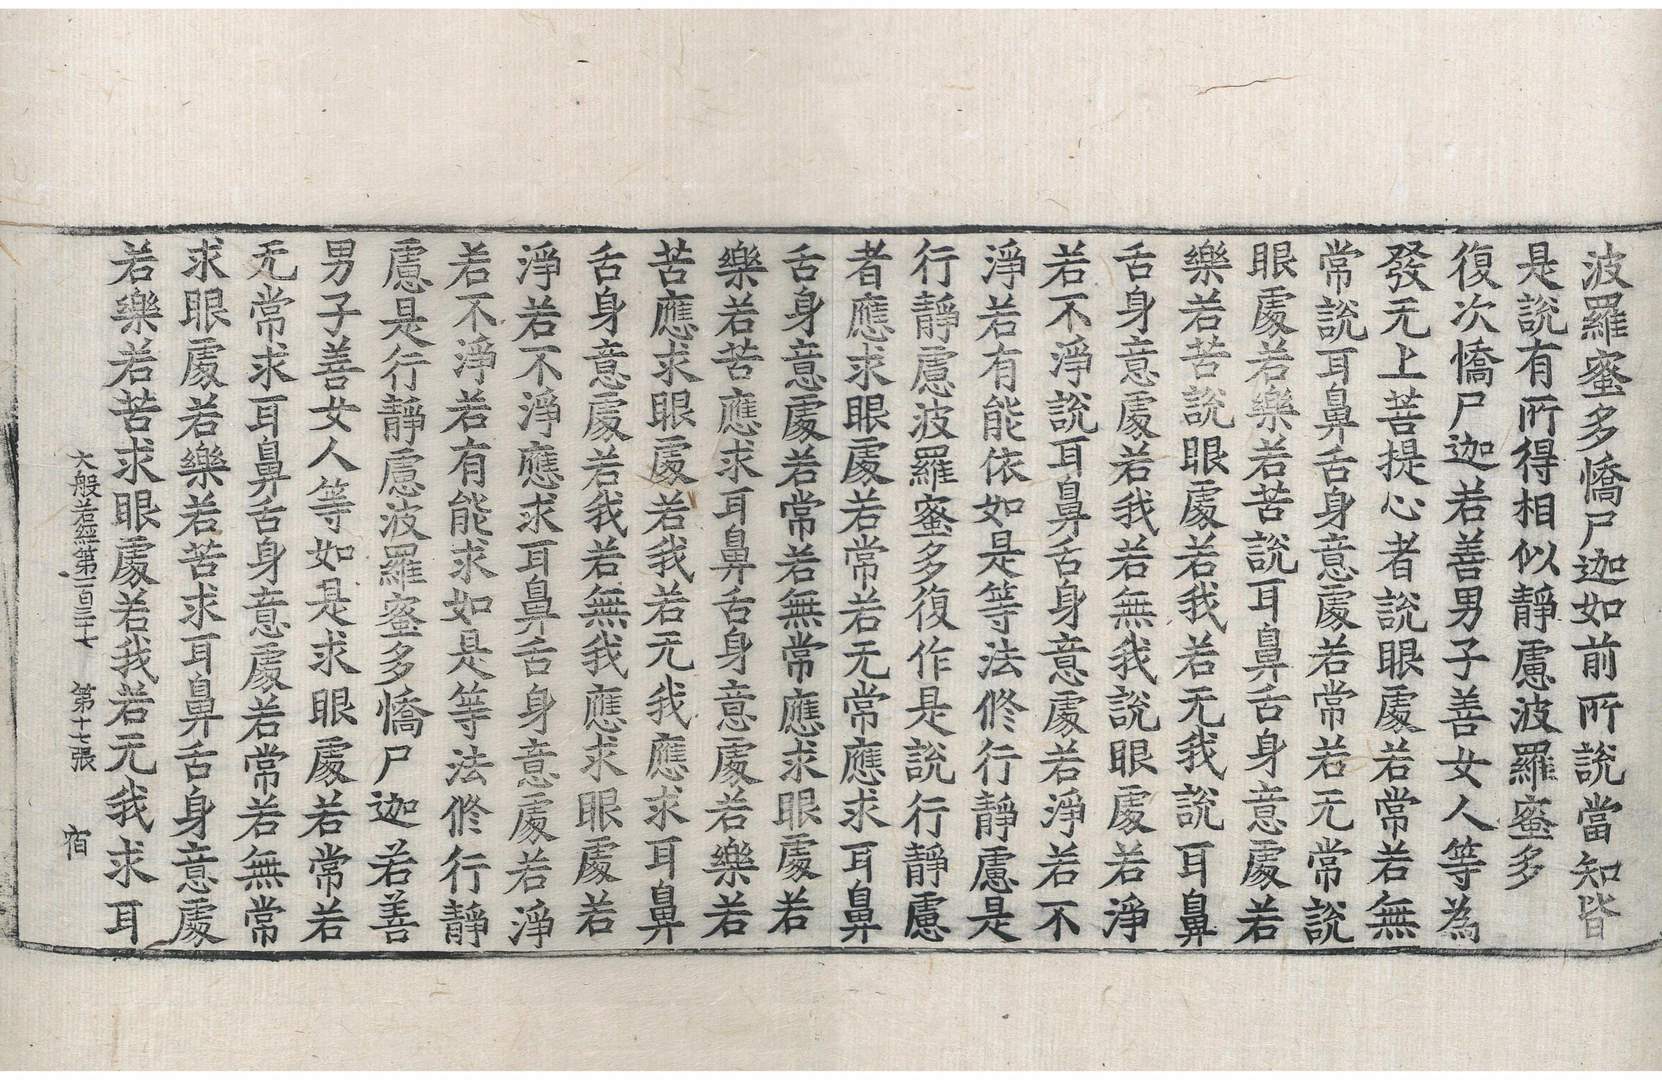 波羅蜜多憍尸迦如前所說當知皆
是說有所得相似靜慮波羅蜜多
復次憍尸迦若善男子善女人等為
發无上菩提心者說眼處若常若無
常說耳鼻舌身意處若常若无常說
眼處若樂若苦說耳鼻舌身意處若
樂若苦說眼處若我若无我說耳鼻
舌身意處若我若無我說眼處若淨
若不淨說耳鼻舌身意處若淨若不
淨若有能依如是等法修行靜慮是
行靜慮波羅蜜多復作是說行靜慮
者應求眼處若常若无常應求耳鼻
舌身意處若常若無常應求眼處若
樂若苦應求耳鼻舌身意處若樂若
苦應求眼處若我若无我應求耳鼻
舌身意處若我若無我應求眼處若
淨若不淨應求耳鼻舌身意處若淨
若不淨若有能求如是等法修行靜
慮是行靜慮波羅蜜多憍尸迦若善
男子善女人等如是求眼處若常若
无常求耳鼻舌身意處若常若無常
求眼處若樂若苦求耳鼻舌身意處
若樂若苦求眼處若我若无我求耳
大般若經第一百三十七 第十七張 宿